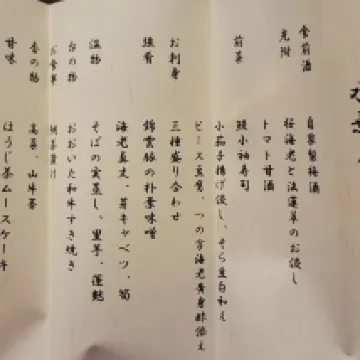 食前酒
自家製梅酒
先附
桜海老と法蓮草のお浸し
トマト甘酒
前菜
鰻小袖寿司
小茄子揚げ浸し、そら豆白和え
ピース豆腐、つの字海老黄身酢添え
お刺身
三種盛り合わせ
強肴
錦雲豚の朴葉味噌
温物
海老真丈、芽キャベツ、筍
そばの実蒸し、里芋、蓮麩
台の物
おおいた和牛すき焼き
お食事
香の物
高菜、山牛蒡
甘味
ほうじ茶ムースケーキ